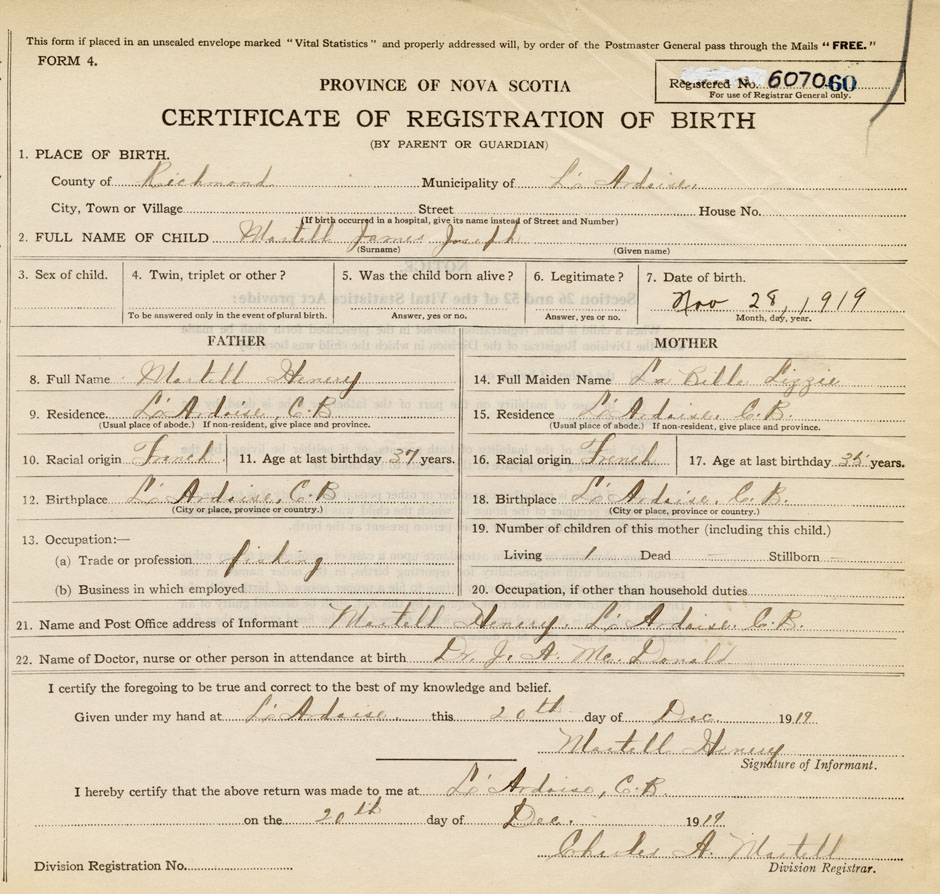 This form if placed in an unsealed envelope marked "Vital Statistics" and properly addressed will, by order of the Postmaster General pass through the Mails "FREE."
FORM 4.
Registered No. 607060
For use of Registrar General only.
PROVINCE OF NOVA SCOTIA
CERTIFICATE OF REGISTRATION OF BIRTH
(BY PARENT OR GUARDIAN)
1. PLACE OF BIRTH.
County of Richmond Municipality of L'Ardoise
City, Town or Village Street House No.
(If birth occurred in a hospital, give its name instead of Street and Number)
2. FULL NAME OF CHILD Martell James Joseph
(Surname) (Given name)
3. Sex of child. 4. Twin, triplet or other? 5. Was the child born alive? 6. Legitimate? 7. Date of birth.
Nov 28, 1919
To be answered only in the event of plural birth. Answer, yes or no. Answer, yes or no. Month, day, year.
FATHER MOTHER
8. Full Name Martell Henery 14. Full Maiden Name La Bille Lizzie
9. Residence. L'Ardoise, C.B. 15. Residence L'Ardoise. C.B.
(Usual place of abode.) If non-resident, give place and province. (Usual place of abode.) If non-resident, give place and province.
10. Racial origin French 11. Age at last birthday 37 years. 16. Racial origin French 17. Age at last birthday years.
12. Birthplace L'Ardoise, C.B 18. Birthplace L'Ardoise, C.B.
(City or place, province or country.) (City or place, province or country.)
13. Occupation:— 19. Number of children of this mother (including this child.)
(a) Trade or profession fishing Living 1 Dead — Stillborn —
(b) Business in which employed 20. Occupation, if other than household duties
21. Name and Post Office address of Informant Martell Henery. L'Ardoise. C.B.
22. Name of Doctor, nurse or other person in attendance at birth Dr. J. A. Mc Donald
I certify the foregoing to be true and correct to the best of my knowledge and belief.
Given under my hand at L'Ardoise. this 20th day of Dec. 1919.
Martell Henery
Signature of Informant.
I hereby certify that the above return was made to me at L'Ardoise, C.B.
on the 20th day of Dec. 1919
Charles A. Martell
Division Registration No. Division Registrar.